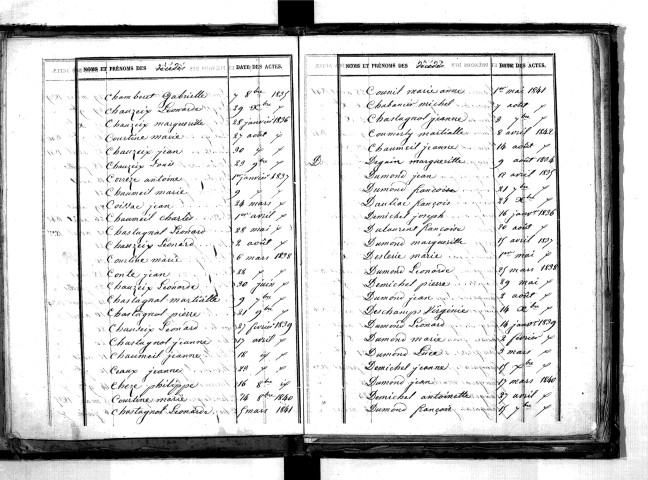 NOMS ET PRÉNOMS DES décédés DATE DES ACTES.
Chamberet Gabrielle 7 8bre 1835
Chauzeix Léonarde 29 Xbre
Chauzeix marguerite 28 janvier 1836
Courtine marie 27 août
Chauzeix jean 30
Chauzeix 29 9bre
Corrèze antoine 1er janvier 1837
Chaumeil marie 9
Coissac jean 24 mars
Chaumeil charles 1er avril
Chastagnol Léonard 28 mai
Chauzeix Léonard 2 août
Courtine marie 6 mars 1838
Conte jean 28
Chauzeix Léonarde 30 juin
Chastagnol martialle 9 7bre
Chastagnol pierre 21 9bre
Chauzeix Léonard 27 fevrier 1839
Chastagnol jeanne 17 avril
Chaumeil jeanne 18 id
Ceaux jeanne 29
Cheze philippe 16 8bre id
Courtine marie 8bre 1840
Chastagnol Léonarde 5 mars 1841
NOMS ET PRÉNOMS DES décédés DATE DES ACTES.
Counil marie anne 1er mai 1841
Chabanier michel 7 août
Chastagnol jeanne 2 7bre
Coumorty martialle 8 avril 1842
Chaumeil jeanne 14 août
D Degain marguerite 9 août 1834
Dumond jean 12 avril 1835
Dumond françoise 21 7bre
Dauliac françois 25 Xbre
Demichel joseph 16 janvier 1836
Dulaurent françoise 20 août
Dumond marguerite 15 avril 1837
Deslerie marie 1er mai
Dumond Léonarde 25 mars 1838
Demichel pierre 29 mai
Dumond jean 2 août
Deschamps Virginie 14 Xbre
Dumond Léonard 14 janvier 1839
Dumond marie 2 fevrier
Dumond Luce 3 mars
Demichel jeanne 15 Xbre
Dumond jean 17 mars 1840
Demichel antoinette 27 avril
Dumond françois 15 7bre